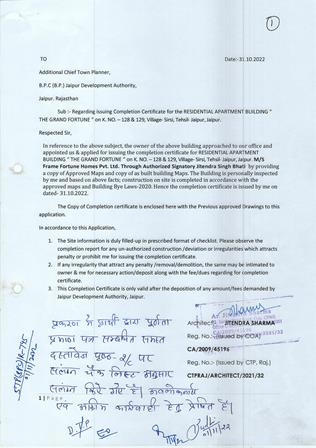 1
TO
Date:-31.10.2022
Additional Chief Town Planner,
B.P.C (B.P.) Jaipur Development Authority,
Jaipur. Rajasthan
Sub :- Regarding issuing Completion Certificate for the RESIDENTIAL APARTMENT BUILDING "
THE GRAND FORTUNE " on K. NO. – 128 & 129, Village- Sirsi, Tehsil- Jaipur, Jaipur.
Respected Sir,
In reference to the above subject, the owner of the above building approached to our office and
appointed us & applied for issuing the completion certificate for RESIDENTIAL APARTMENT
BUILDING " THE GRAND FORTUNE " on K. NO. – 128 & 129, Village- Sirsi, Tehsil- Jaipur, Jaipur. M/S
Frame Fortune Homes Pvt. Ltd. Through Authorized Signatory Jitendra Singh Bhati by providing
a copy of Approved Maps and copy of as built building Maps. The Building is personally inspected
by me and based on above facts; construction on site is completed in accordance with the
approved maps and Building Bye Laws-2020. Hence the completion certificate is issued by me on
dated- 31.10.2022.
The Copy of Completion certificate is enclosed here with the Previous approved Drawings to this
application.
In accordance to this Application,
1. The Site information is duly filled-up in prescribed format of checklist. Please observe the
completion report for any un-authorized construction /deviation or irregularities which attracts
penalty or prohibit me for issuing the completion certificate.
2. If any irregularity that attract any penalty /removal/demolition, the same may be intimated to
owner & me for necessary action/deposit along with the fee/dues regarding for completion
certificate.
3. This Completion Certificate is only valid after the deposition of any amount/fees demanded by
Jaipur Development Authority, Jaipur.
Architect: JITENDRA SHARMA
Reg. No.- (Issued by COA)
CA/2009/45196
Reg. No.- (Issued by CTP, Raj.)
CTPRAJ/ARCHITECT/2021/32
प्रकरण में प्रार्थी द्वारा पूर्णता
प्रमाण पत्र सम्बंधित समस्त
दस्तावेज पृष्ठ- पर
संलग्न चैक लिस्ट अनुसार
संलग्न किये गए है। अवलोकनार्थ
1 | Page
एवं अग्रिम कार्यवाही हेतु प्रेषित है।